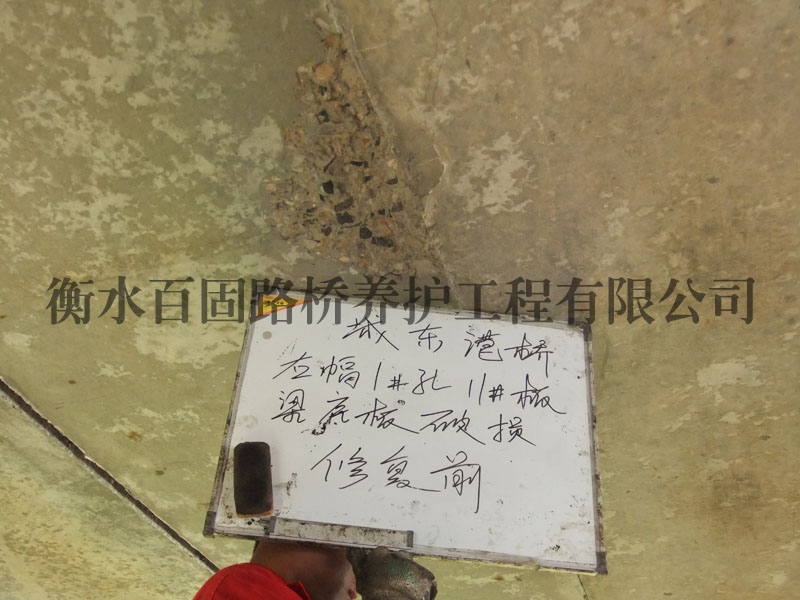 衡水百固路桥养护工程有限公司
城东港桥
左幅1#孔11#板
梁底板破损
修复前